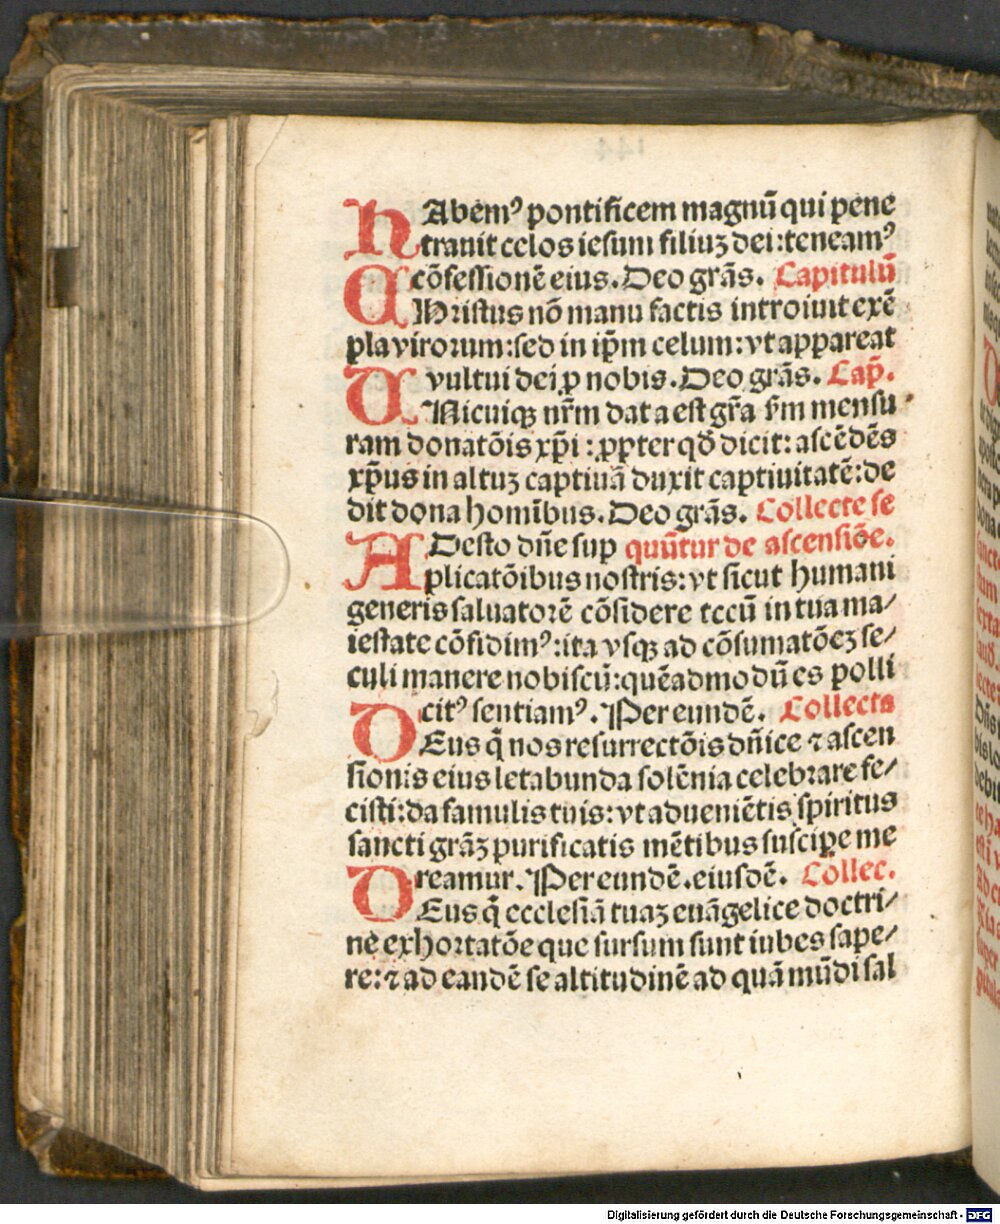 HAbemꝰ pontificem magnū qui pene
trauit celos iesum filiuȝ dei: teneamꝰ
cōfessionē eius. Deo grās. Capitulū
CHristus nō manu factis introiuit exē
pla virorum: sed in ip̄m celum: vt appareat
vultui dei ꝓ nobis. Deo grās. Cap̄.
VNicuiqȝ nr̄m data est gr̄a s̄m mensu
ram donatōis xp̄i: ꝓpter qđ dicit: ascēdēs
xp̄us in altuȝ captiuā duxit captiuitatē: de
dit dona homībus. Deo grās. Collecte se
ADesto dn̄e sup quūtur de ascensiōe.
plicatōibus nostris: vt sicut humani
generis saluatorē cōsidere tecū in tua ma/
iestate cōfidimꝰ: ita vsqȝ ad cōsumatōeȝ se/
culi manere nobiscū: quēadmodū es polli
citꝰ sentiamꝰ. Per eundē. Collecta
DEus q̄ nos resurrectōis dn̄ice ⁊ ascen
sionis eius letabunda solēnia celebrare fe/
cisti: da famulis tuis: vt adueniētis spiritus
sancti grāȝ purificatis mētibus suscipe me
reamur. Per eundē. eiusdē. Collec.
DEus q̄ ecclesiā tuaȝ euāgelice doctri/
ne exhortatōe que sursum sunt iubes sape/
re: ⁊ ad eandē se altitudinē ad quā mūdi sal
Digitalisierung gefördert durch die Deutsche Forschungsgemeinschaft - DFG